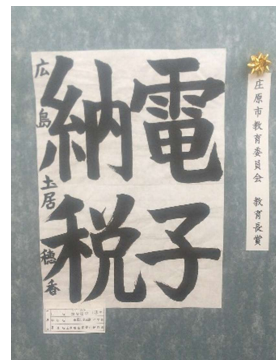 電子
納税
広島 土居 穂香
庄原市教育委員会 教育長賞